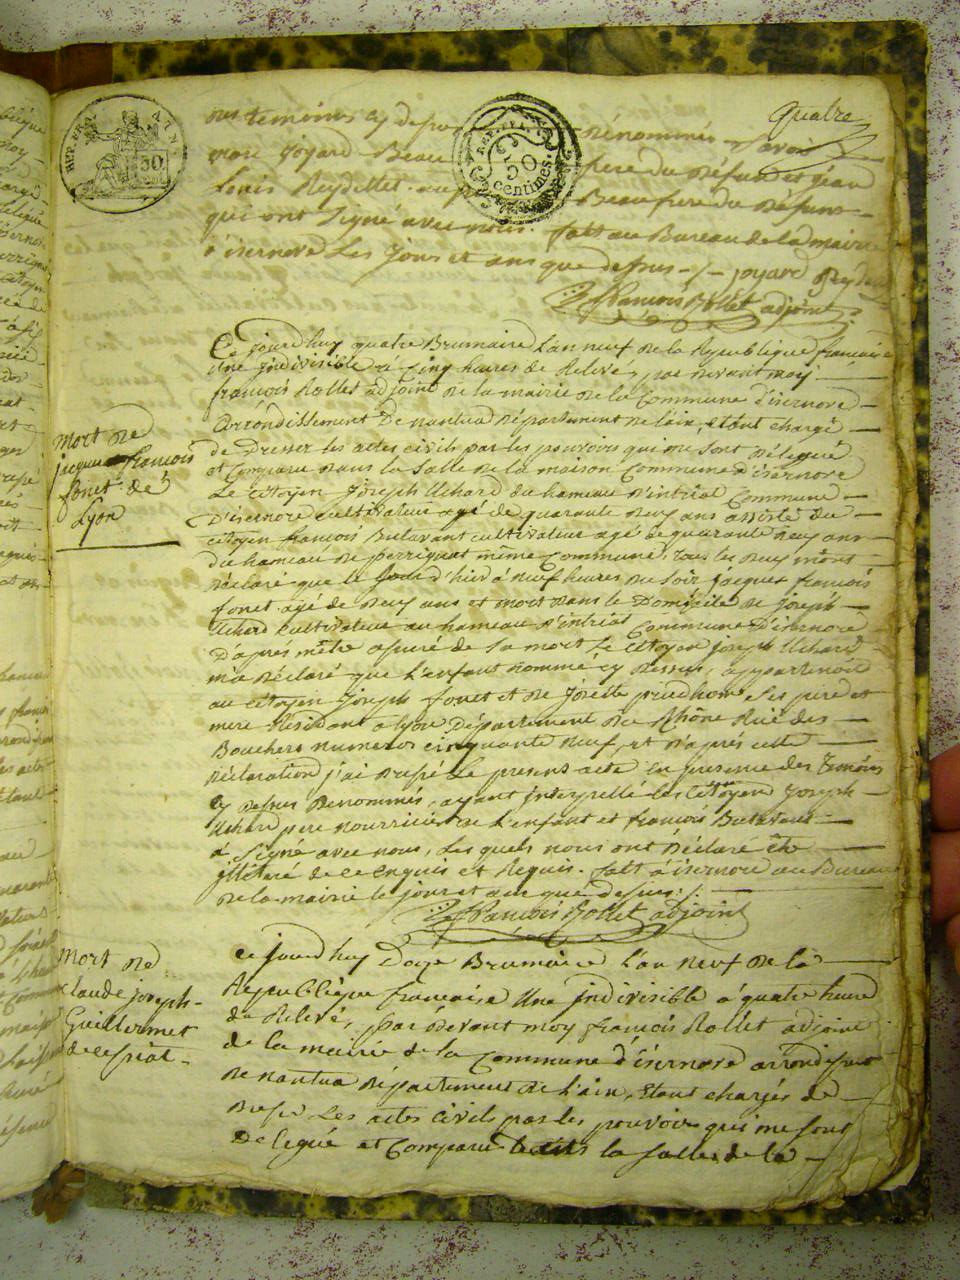 quatre
des temoins cy desus dénommés Savoir
joyard Beau frere du défunt et jean
Louis Reydellet au Beaufrere du défunt
qui ont Signé avec nous. fait au Bureau de la mairie
d'isernore Les jours et ans que desus joyard Reydellet
françois Rollet adjoint
50 centimes
Ce jourdhuy quatre Brumaire L'an neuf de la Republique française
une indivisible a Cinq heures de Relevé, par devant moy
françois Rollet adjoint de la mairie de la Commune d'isernore
Arrondissement De nantua Département de l'ain, Etant chargé
de Dresser les actes civils par les pouvoirs qui me sont délégué
et Comparu dans la Salle de la maison Commune d'isernore
Le citoyen Joseph Uchard du hameau d'intriat Commune
D'isernore cultivateur agé de quarante deux ans assisté du
citoyen françois Butavant cultivateur agé de quarante deux ans
du hameau de perrignat même Commune, tous les deux m'ont
Déclaré que le jour d'hier à neuf heures du soir jacques françois
fonet agé de deux ans et mort dans le Domicile de joseph
Uchard cultivateur au hameau d'intriat Commune D'isernore
D'après m'être assuré de sa mort Le citoyen joseph Uchard
m'a déclaré que l'enfant nommé cy dessus, appartenoit
au citoyen Joseph fonet et de josette prudhon Ses pere et
mere Résidant a lyon Département du Rhône Rue des
Bouchers numeros cinquante neuf, et d'après cette
déclaration j'ai dressé Le present acte En presence des temoins
cy desus denommés, ayant interpellé les Citoyen Joseph
Uchard pere nourricier de L'enfant et françois Butavant
à Signé avec nous, Les quels nous ont déclaré être
jlliteré de ce Enquis et Requis. fait à isernore au Bureau
de la mairie le jour et an que desus
françois Rollet adjoint
mort de
jacque françois
fonet de
Lyon
ce jourdhuy Doze Brumaire L'an neuf de la
Republique française Une jndivisible à quatre heure
du Relevé, par devant moy françois Rollet adjoint
de la mairie de la Commune d'isernore arrondisment
de nantua département de L'ain, Etant chargés de
Dresser Les actes civils par les pouvoirs qui me sont
Delegué et Comparu la Salle de la
mort de
claude joseph
Guillermet
de cessiat